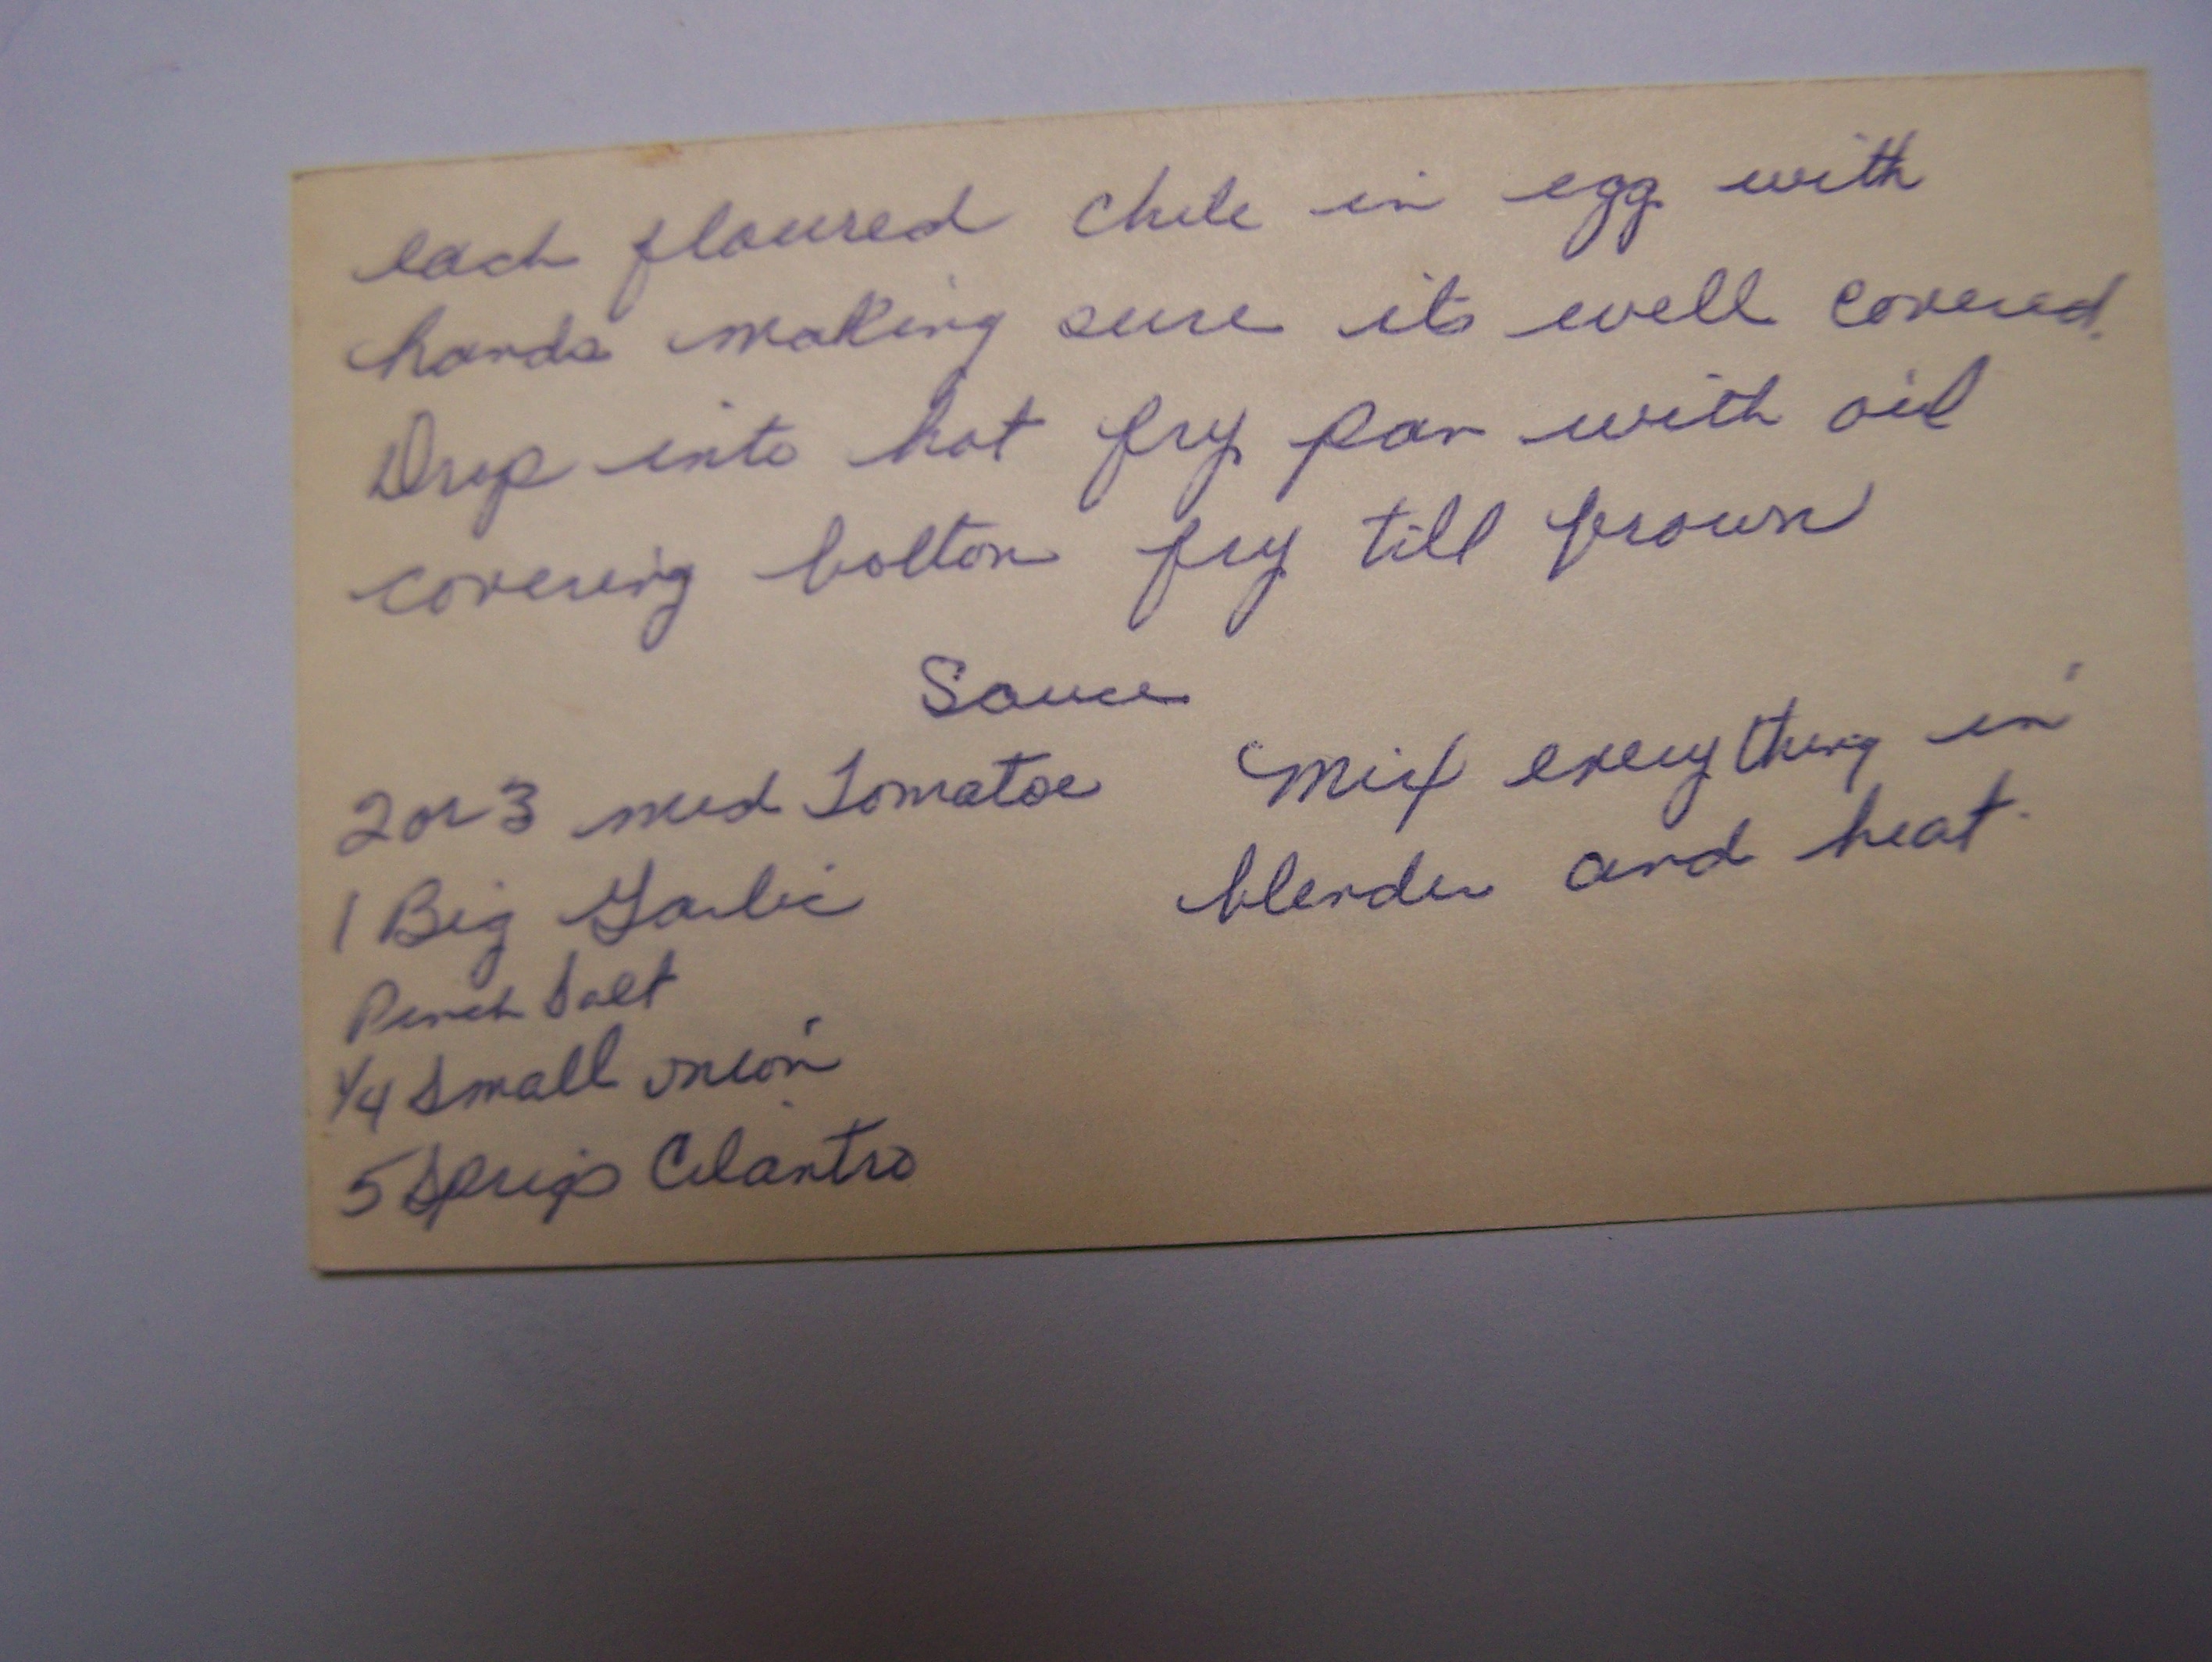 each floured chile in egg with
hands making sure its well covered.
Drop into hot fry pan with oil
covering bottom fry till brown
Sauce
2 or 3 med Tomatoe
1 Big Garlic
Pinch Salt
1/4 Small onion
5 Sprigs Cilantro
Mix everything in
blender and heat.